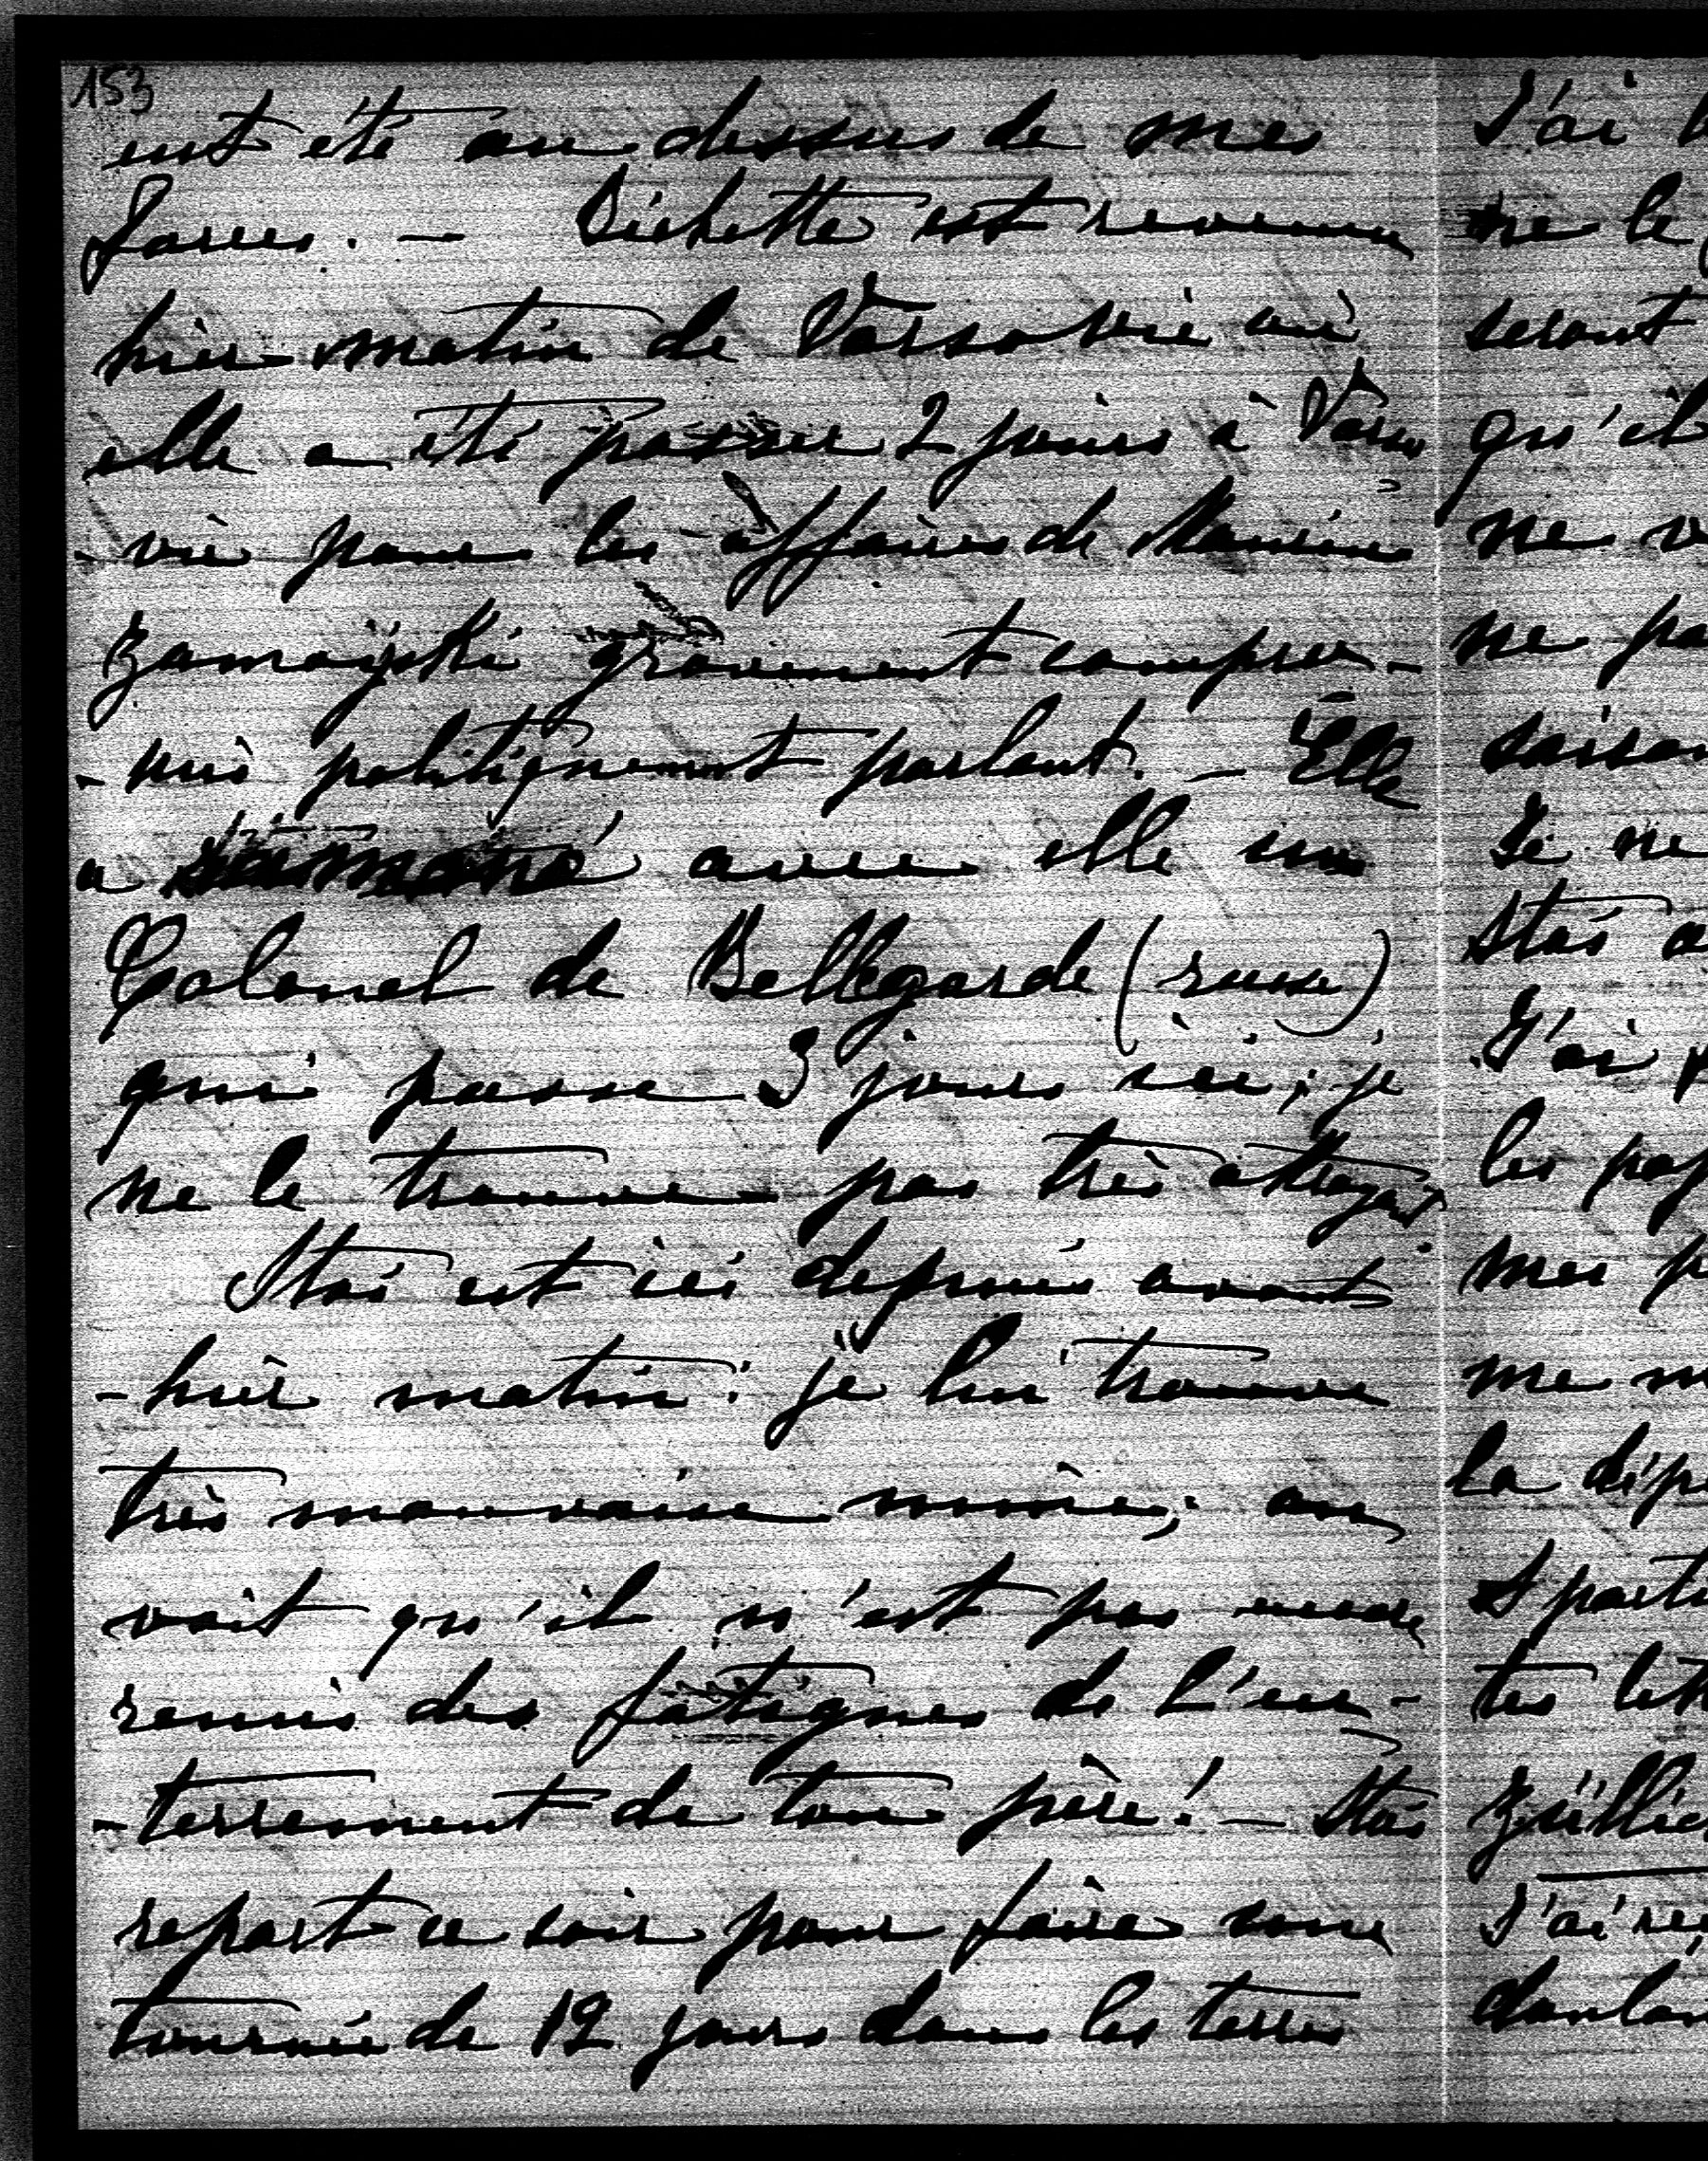 153
eut été au dessus de mes
forces. — Bichette est revenue
hier matin de Varsovie où
elle a été passer 2 jours à Varso
-vie pour les affaires de
Zamoyski gravement compro-
-mis politiquement parlant. — Elle
a ramené avec elle un
Colonel de Bellegarde (russe)
qui passe 3 jours ici; je
ne le trouve pas très attrayant.
Stas est ici depuis avant
-hier matin: je lui trouve
très mauvaise mine; on
voit qu'il n'est pas encore
remis des fatigues de l'en-
-terrement de ton père! — Stas
repart ce soir pour faire une
tournée de 12 jours dans les terres
J'ai
ne le
seront
qu'il
ne
ne

Je ne
Stas
J'ai
les
mes
me
la

tes

J'ai